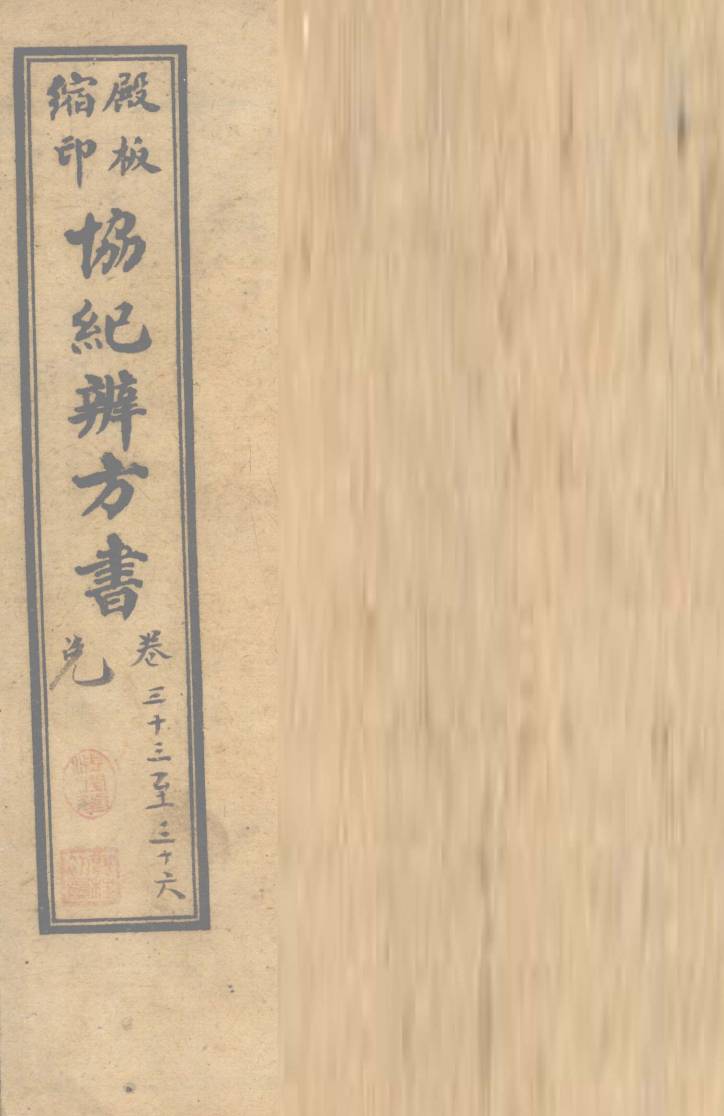 殿板
縮印
協紀辨方書
卷三十三至三十六
兌